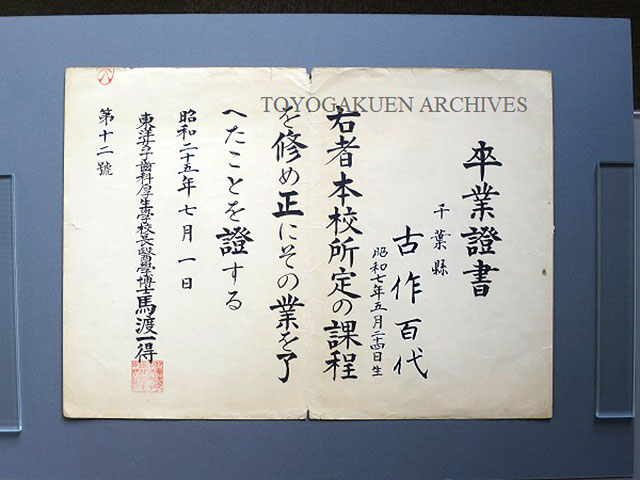 TOYOGAKUEN ARCHIVES
卒業證書
千葉縣
古作百代
昭和七年五月二十四日生
右者本校所定の課程
を修め正にその業を了
へたことを證する
昭和二十五年七月一日
東洋女子歯科厚生學校長醫學博士馬渡一得
第十二號